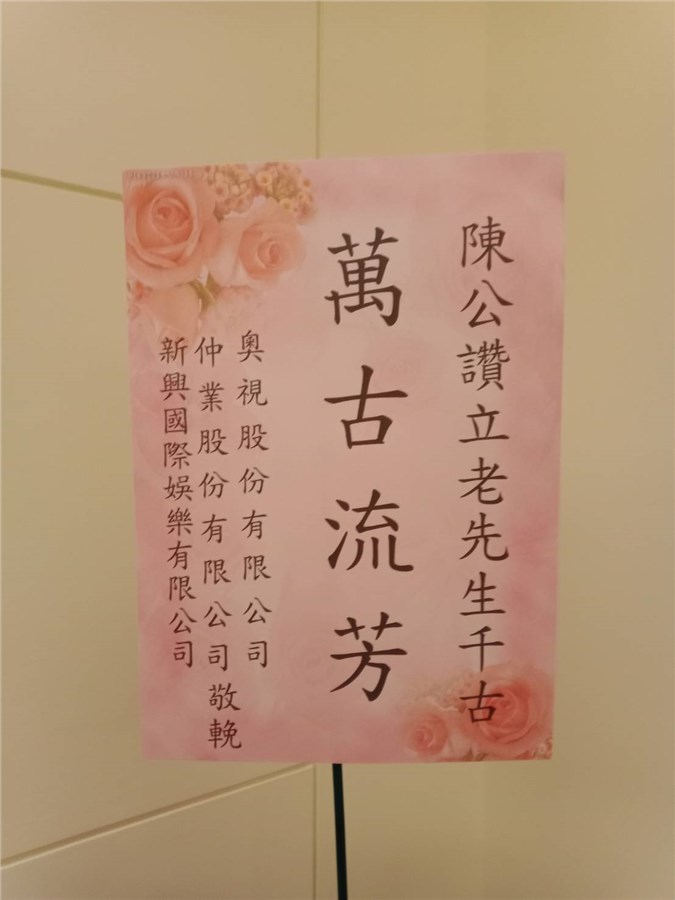 陳公讚立老先生千古
萬古流芳
奧視股份有限公司
仲業股份有限公司敬輓
新興國際娛樂有限公司